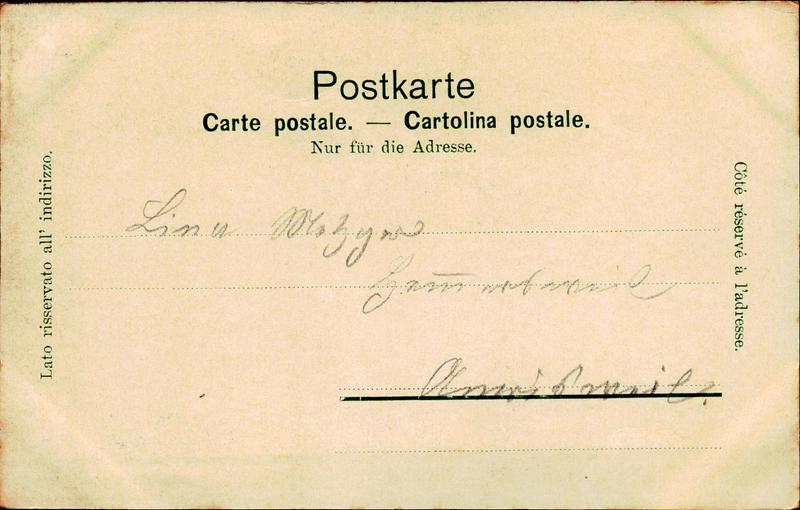 Postkarte
Carte postale. — Cartolina postale.
Nur für die Adresse.
Lato risservato all' indirizzo.
Côté réservé à l'adresse.
Lina Metzger
Amrisweil.